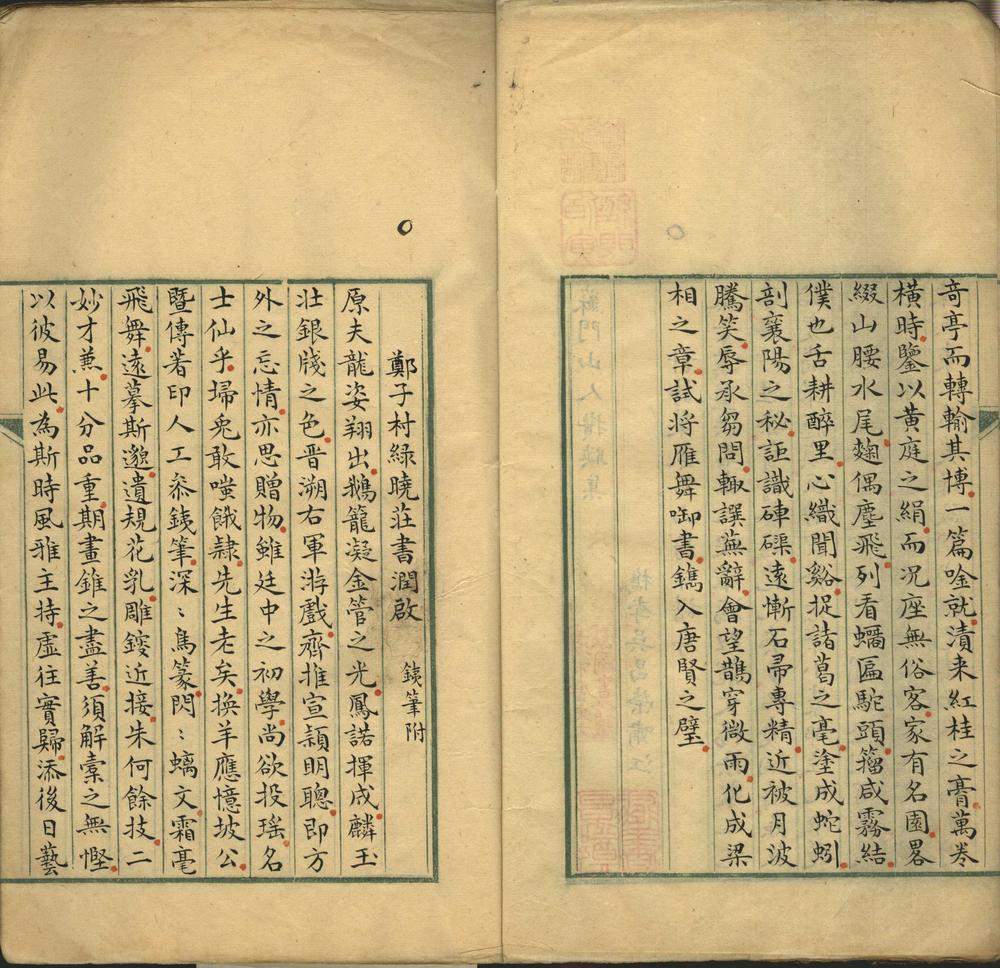 奇亭而轉輸其博一篇唫就漬来紅桂之膏萬卷
橫時鑒以黄庭之絹而况座無俗客家有名園畧
綴山腰水尾麹偶塵飛列看蠣匾駝頭籀咸霧結
僕也舌耕醉里心織聞谿捉諸葛之毫塗成蛇蚓
剖襄陽之秘詎識砷磲遠慚石帚專精近被月波
騰笑辱承芻問輙譔蕪辭會望鵲穿微雨化成梁
相之章試将雁舞啣書鐫入唐賢之璧
鄭子村緑曉莊書潤啟 銕筆附
原夫龍姿翔出鵝籠凝金管之光鳳諾揮成麟玉
壮銀牋之色晋溯右軍游戲齊推宣頴明聰即方
外之忘情亦思贈物雖廷中之初學尚欲投瑶名
士仙乎埽兎敢嗤餓隷先生老矣換羊應憶坡公
暨傳著印人工叅銕筆深〻鳥篆閃〻螭文霜毫
飛舞遠摹斯邈遺規花乳雕鎪近接朱何餘技二
妙才兼十分品重期畫錐之盡善須解橐之無慳
以彼易此為斯時風雅主持虚往實歸添後日藝